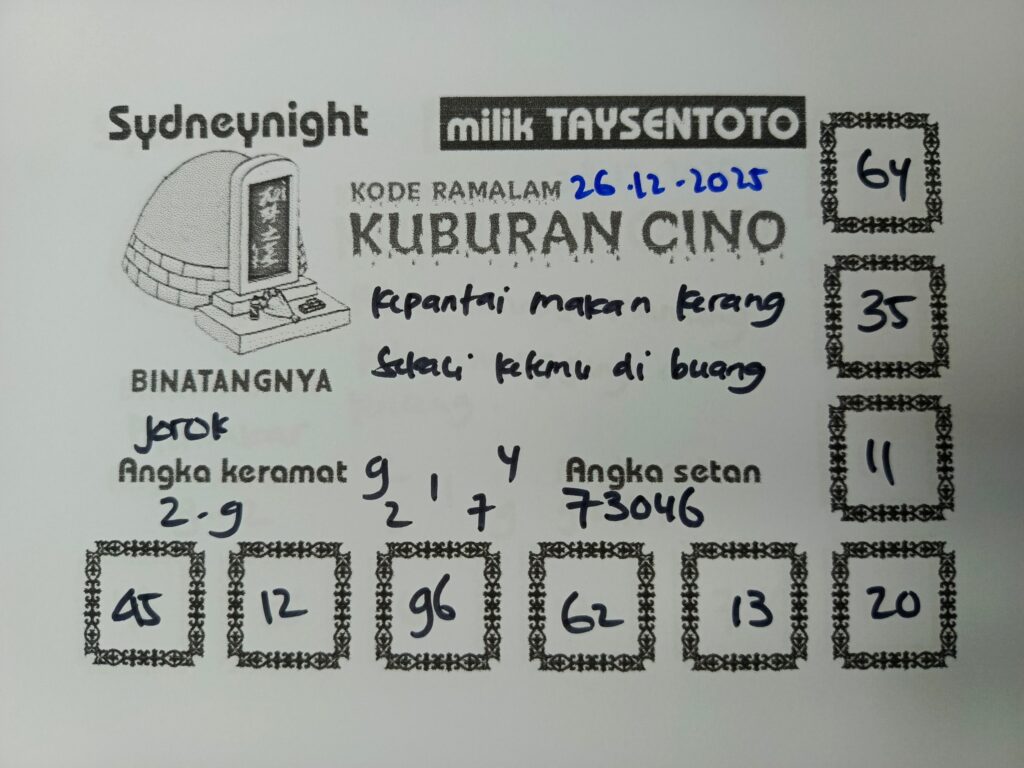 Sydneynight
milik TAYSENTOTO
KODE RAMALAM 26.12.2025
KUBURAN CINO
kepantai makan kerang
ketemu di buang
BINATANGNYA
Jorok
Angka keramat
2.9
9 1 4
2 7
Angka setan
73046
64
35
11
45
12
96
62
13
20